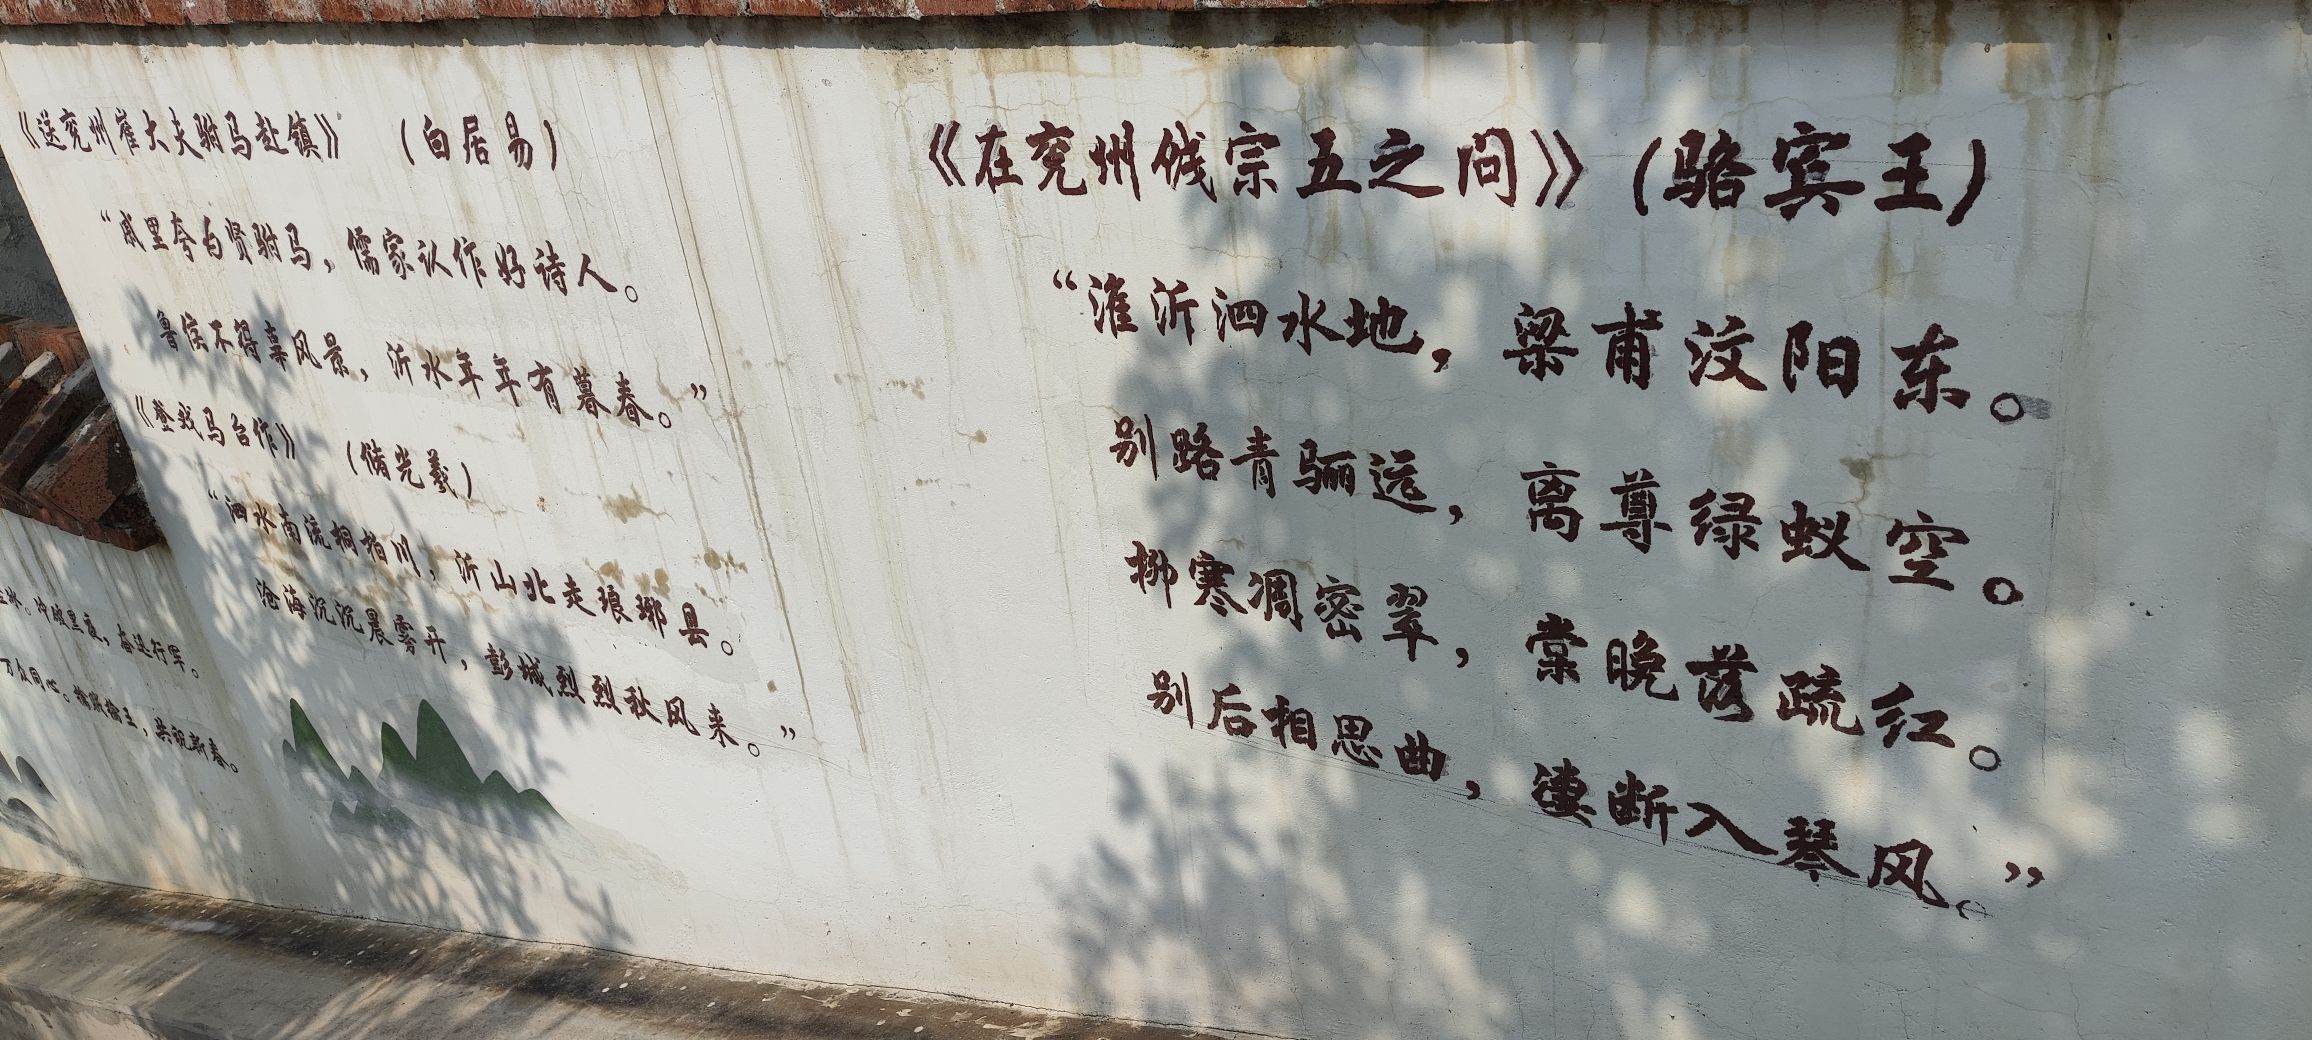 《送兖州崔大夫驸马赴镇》 (白居易)
“戚里夸为贤驸马，儒家认作好诗人。
鲁侯不得辜风景，沂水年年有暮春。”
《登戏马台作》 (储光羲)
“泗水南流桐柏川，沂山北走琅琊县。
沧海沉沉晨雾开，彭城烈烈秋风来。”
冲破黑夜，奋进行军。
万众同心。 共祝新春。
《在兖州饯宗五之问》(骆宾王)
“淮沂泗水地，梁甫汶阳东。
别路青骊远，离尊绿蚁空。
柳寒凋密翠，棠晚落疏红。
别后相思曲，凄断入琴风。”